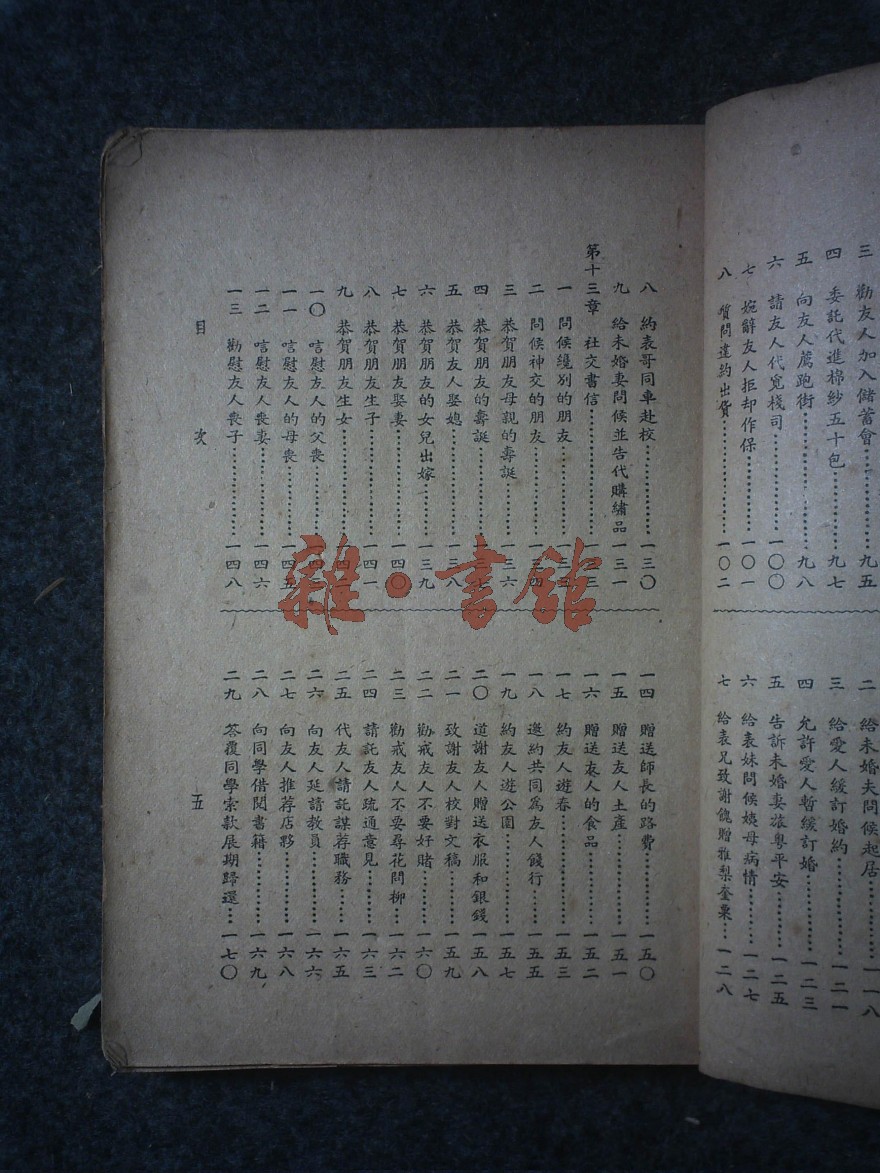 三 勸友人加入儲蓄會……九五
四 委託代進棉紗五十包……九七
五 向友人薦跑街……九八
六 請友人代覓棧司……一〇〇
七 婉辭友人拒却作保……一〇一
八 質問違約出貨……一〇二
二 給未婚夫問候起居……一一八
三 給愛人緩訂婚約……一二一
四 允許愛人暫緩訂婚……一二三
五 告訴未婚妻旅粵平安……一二五
六 給表妹問候姨母病情……一二七
七 給表兄致謝餽贈雅梨奎栗……一二八
八 約表哥同車赴校……一三〇
九 給未婚妻問候並告代購繡品……一三一
第十三章 社交書信……一三三
一 問候纔別的朋友……一三三
二 問候神交的朋友……一三四
三 恭賀朋友母親的壽誕……一三六
四 恭賀朋友的壽誕……一三七
五 恭賀友人娶媳……一三八
六 恭賀朋友的女兒出嫁……一三九
七 恭賀朋友娶妻……一四〇
八 恭賀朋友生子……一四一
九 恭賀朋友生女……一四
一〇 唁慰友人的父喪……一四
一一 唁慰友人的母喪……一四五
一二 唁慰友人喪妻……一四六
一三 勸慰友人喪子……一四八
一四 贈送師長的路費……一五〇
一五 贈送友人土產……一五一
一六 贈送友人的食品……一五二
一七 約友人遊春……一五三
一八 邀約共同為友人餞行……一五五
一九 約友人遊公園……一五七
二〇 道謝友人贈送衣服和銀錢……一五八
二一 致謝友人校對文稿……一五九
二二 勸戒友人不要好賭……一六〇
二三 勸戒友人不要尋花問柳……一六二
二四 請託友人疏通意見……一六三
二五 代友人請託謀荐職務……一六五
二六 向友人延請教員……一六六
二七 向友人推荐店夥……一六八
二八 向同學借閱書籍……一六九
二九 答覆同學索款展期歸還……一七〇
目 次 五
雜·書館